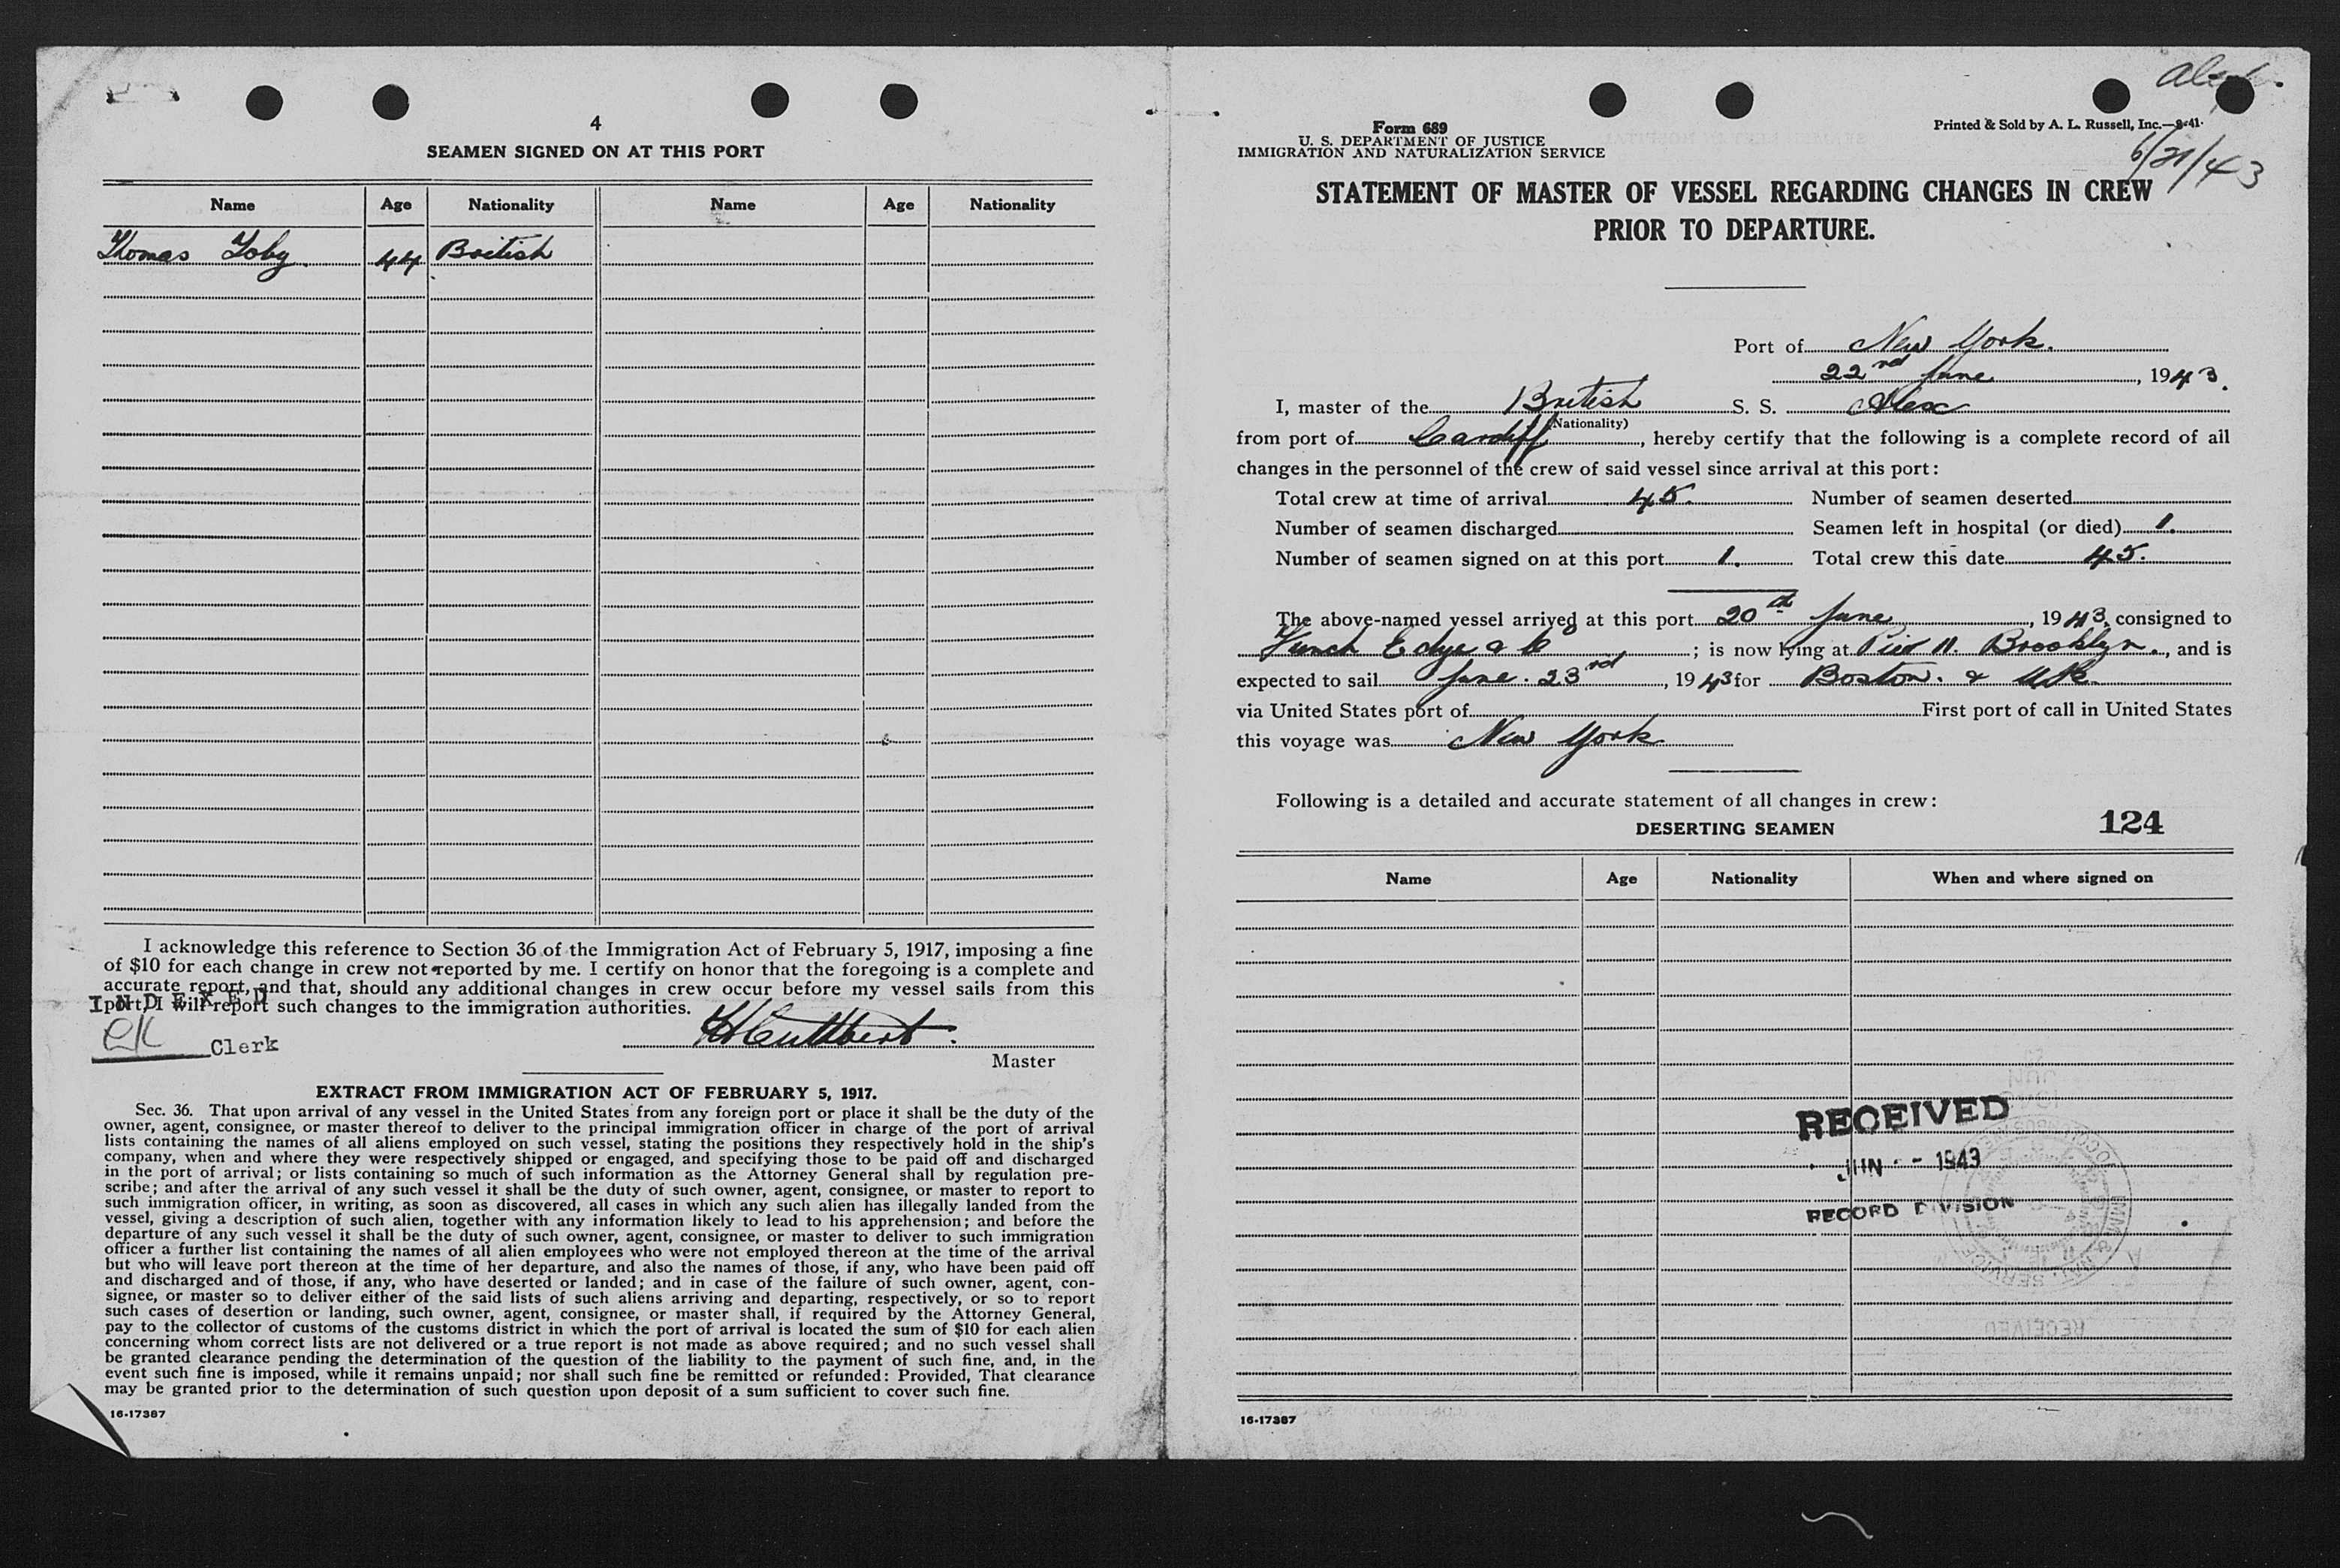 4
SEAMEN SIGNED ON AT THIS PORT
Name Age Nationality Name Age Nationality
Thomas Toby. 44 British
I acknowledge this reference to Section 36 of the Immigration Act of February 5, 1917, imposing a fine
of $10 for each change in crew not reported by me. I certify on honor that the foregoing is a complete and
accurate report, and that, should any additional changes in crew occur before my vessel sails from this
port, I will report such changes to the immigration authorities.
INDEXED
Clerk
Cuthbert.
Master
EXTRACT FROM IMMIGRATION ACT OF FEBRUARY 5, 1917.
Sec. 36. That upon arrival of any vessel in the United States from any foreign port or place it shall be the duty of the
owner, agent, consignee, or master thereof to deliver to the principal immigration officer in charge of the port of arrival
lists containing the names of all aliens employed on such vessel, stating the positions they respectively hold in the ship's
company, when and where they were respectively shipped or engaged, and specifying those to be paid off and discharged
in the port of arrival; or lists containing so much of such information as the Attorney General shall by regulation pre-
scribe; and after the arrival of any such vessel it shall be the duty of such owner, agent, consignee, or master to report to
such immigration officer, in writing, as soon as discovered, all cases in which any such alien has illegally landed from the
vessel, giving a description of such alien, together with any information likely to lead to his apprehension; and before the
departure of any such vessel it shall be the duty of such owner, agent, consignee, or master to deliver to such immigration
officer a further list containing the names of all alien employees who were not employed thereon at the time of the arrival
but who will leave port thereon at the time of her departure, and also the names of those, if any, who have been paid off
and discharged and of those, if any, who have deserted or landed; and in case of the failure of such owner, agent, con-
signee, or master so to deliver either of the said lists of such aliens arriving and departing, respectively, or so to report
such cases of desertion or landing, such owner, agent, consignee, or master shall, if required by the Attorney General,
pay to the collector of customs of the customs district in which the port of arrival is located the sum of $10 for each alien
concerning whom correct lists are not delivered or a true report is not made as above required; and no such vessel shall
be granted clearance pending the determination of the question of the liability to the payment of such fine, and, in the
event such fine is imposed, while it remains unpaid; nor shall such fine be remitted or refunded: Provided, That clearance
may be granted prior to the determination of such question upon deposit of a sum sufficient to cover such fine.
16-17387
Form 689
U. S. DEPARTMENT OF JUSTICE
IMMIGRATION AND NATURALIZATION SERVICE
Printed & Sold by A. L. Russell, Inc.—8-41
6/21/43
STATEMENT OF MASTER OF VESSEL REGARDING CHANGES IN CREW
PRIOR TO DEPARTURE.
Port of New York.
22nd June, 1943.
I, master of the British S. S. Alex
(Nationality)
from port of Cardiff, hereby certify that the following is a complete record of all
changes in the personnel of the crew of said vessel since arrival at this port:
Total crew at time of arrival 45. Number of seamen deserted
Number of seamen discharged Seamen left in hospital (or died) 1.
Number of seamen signed on at this port 1. Total crew this date 45.
The above-named vessel arrived at this port 20th June, 1943, consigned to
Funch Edye & Co; is now lying at Pier 11. Brooklyn., and is
expected to sail June. 23rd, 1943 for Boston. & U.K.
via United States port of First port of call in United States
this voyage was New York
Following is a detailed and accurate statement of all changes in crew:
DESERTING SEAMEN
124
Name Age Nationality When and where signed on
RECEIVED
JUN - 1943
RECORD DIVISION
16-17387